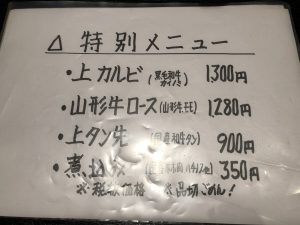 △ 特別メニュー
・上カルビ (黒毛和牛 カイノミ) 1,300円
・山形牛ロース (山形牛モモ) 1,280円
・上タン先 (国産和牛タン) 900円
・煮込み 350円
※税抜価格 ※品切ごめん!